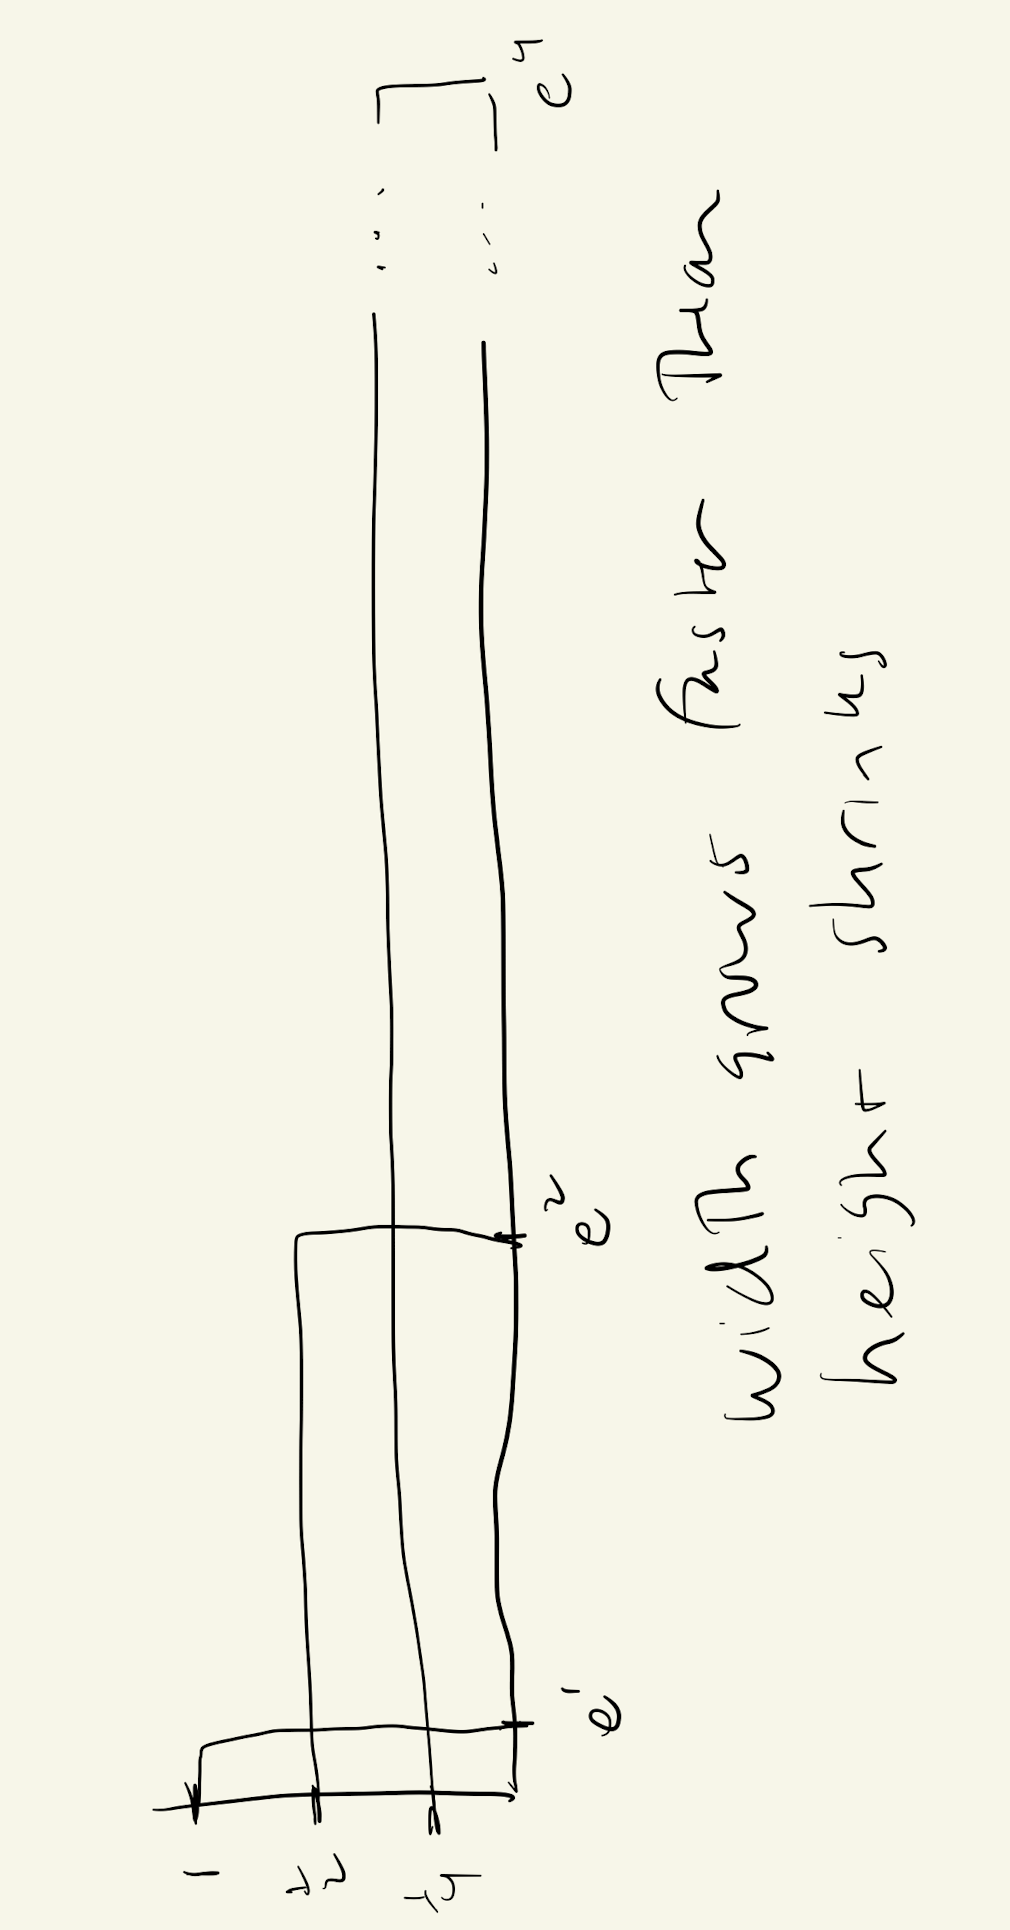 1
1/2
1/4
e¹
e²
e⁴
width grows faster Than
height shrinks